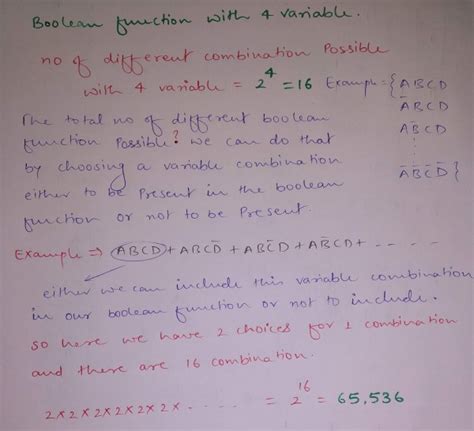 Boolean function with 4 variable.
no of different combination Possible
with 4 variable = 2⁴ = 16 Example = {ABCD
A̅BCD
The total no of different boolean
AB̅CD
function Possible? we can do that
⋮
by choosing a variable combination
A̅B̅C̅D̅}
either to be Present in the boolean
function or not to be Present.
Example ⇒ ABCD + ABCD̅ + ABC̅D + AB̅CD + - - - -
either we can include this variable combination
in our boolean function or not to include.
so here we have 2 choices for 1 combination
and there are 16 combination.
2×2×2×2×2×2× . . . . . = 2¹⁶ = 65,536